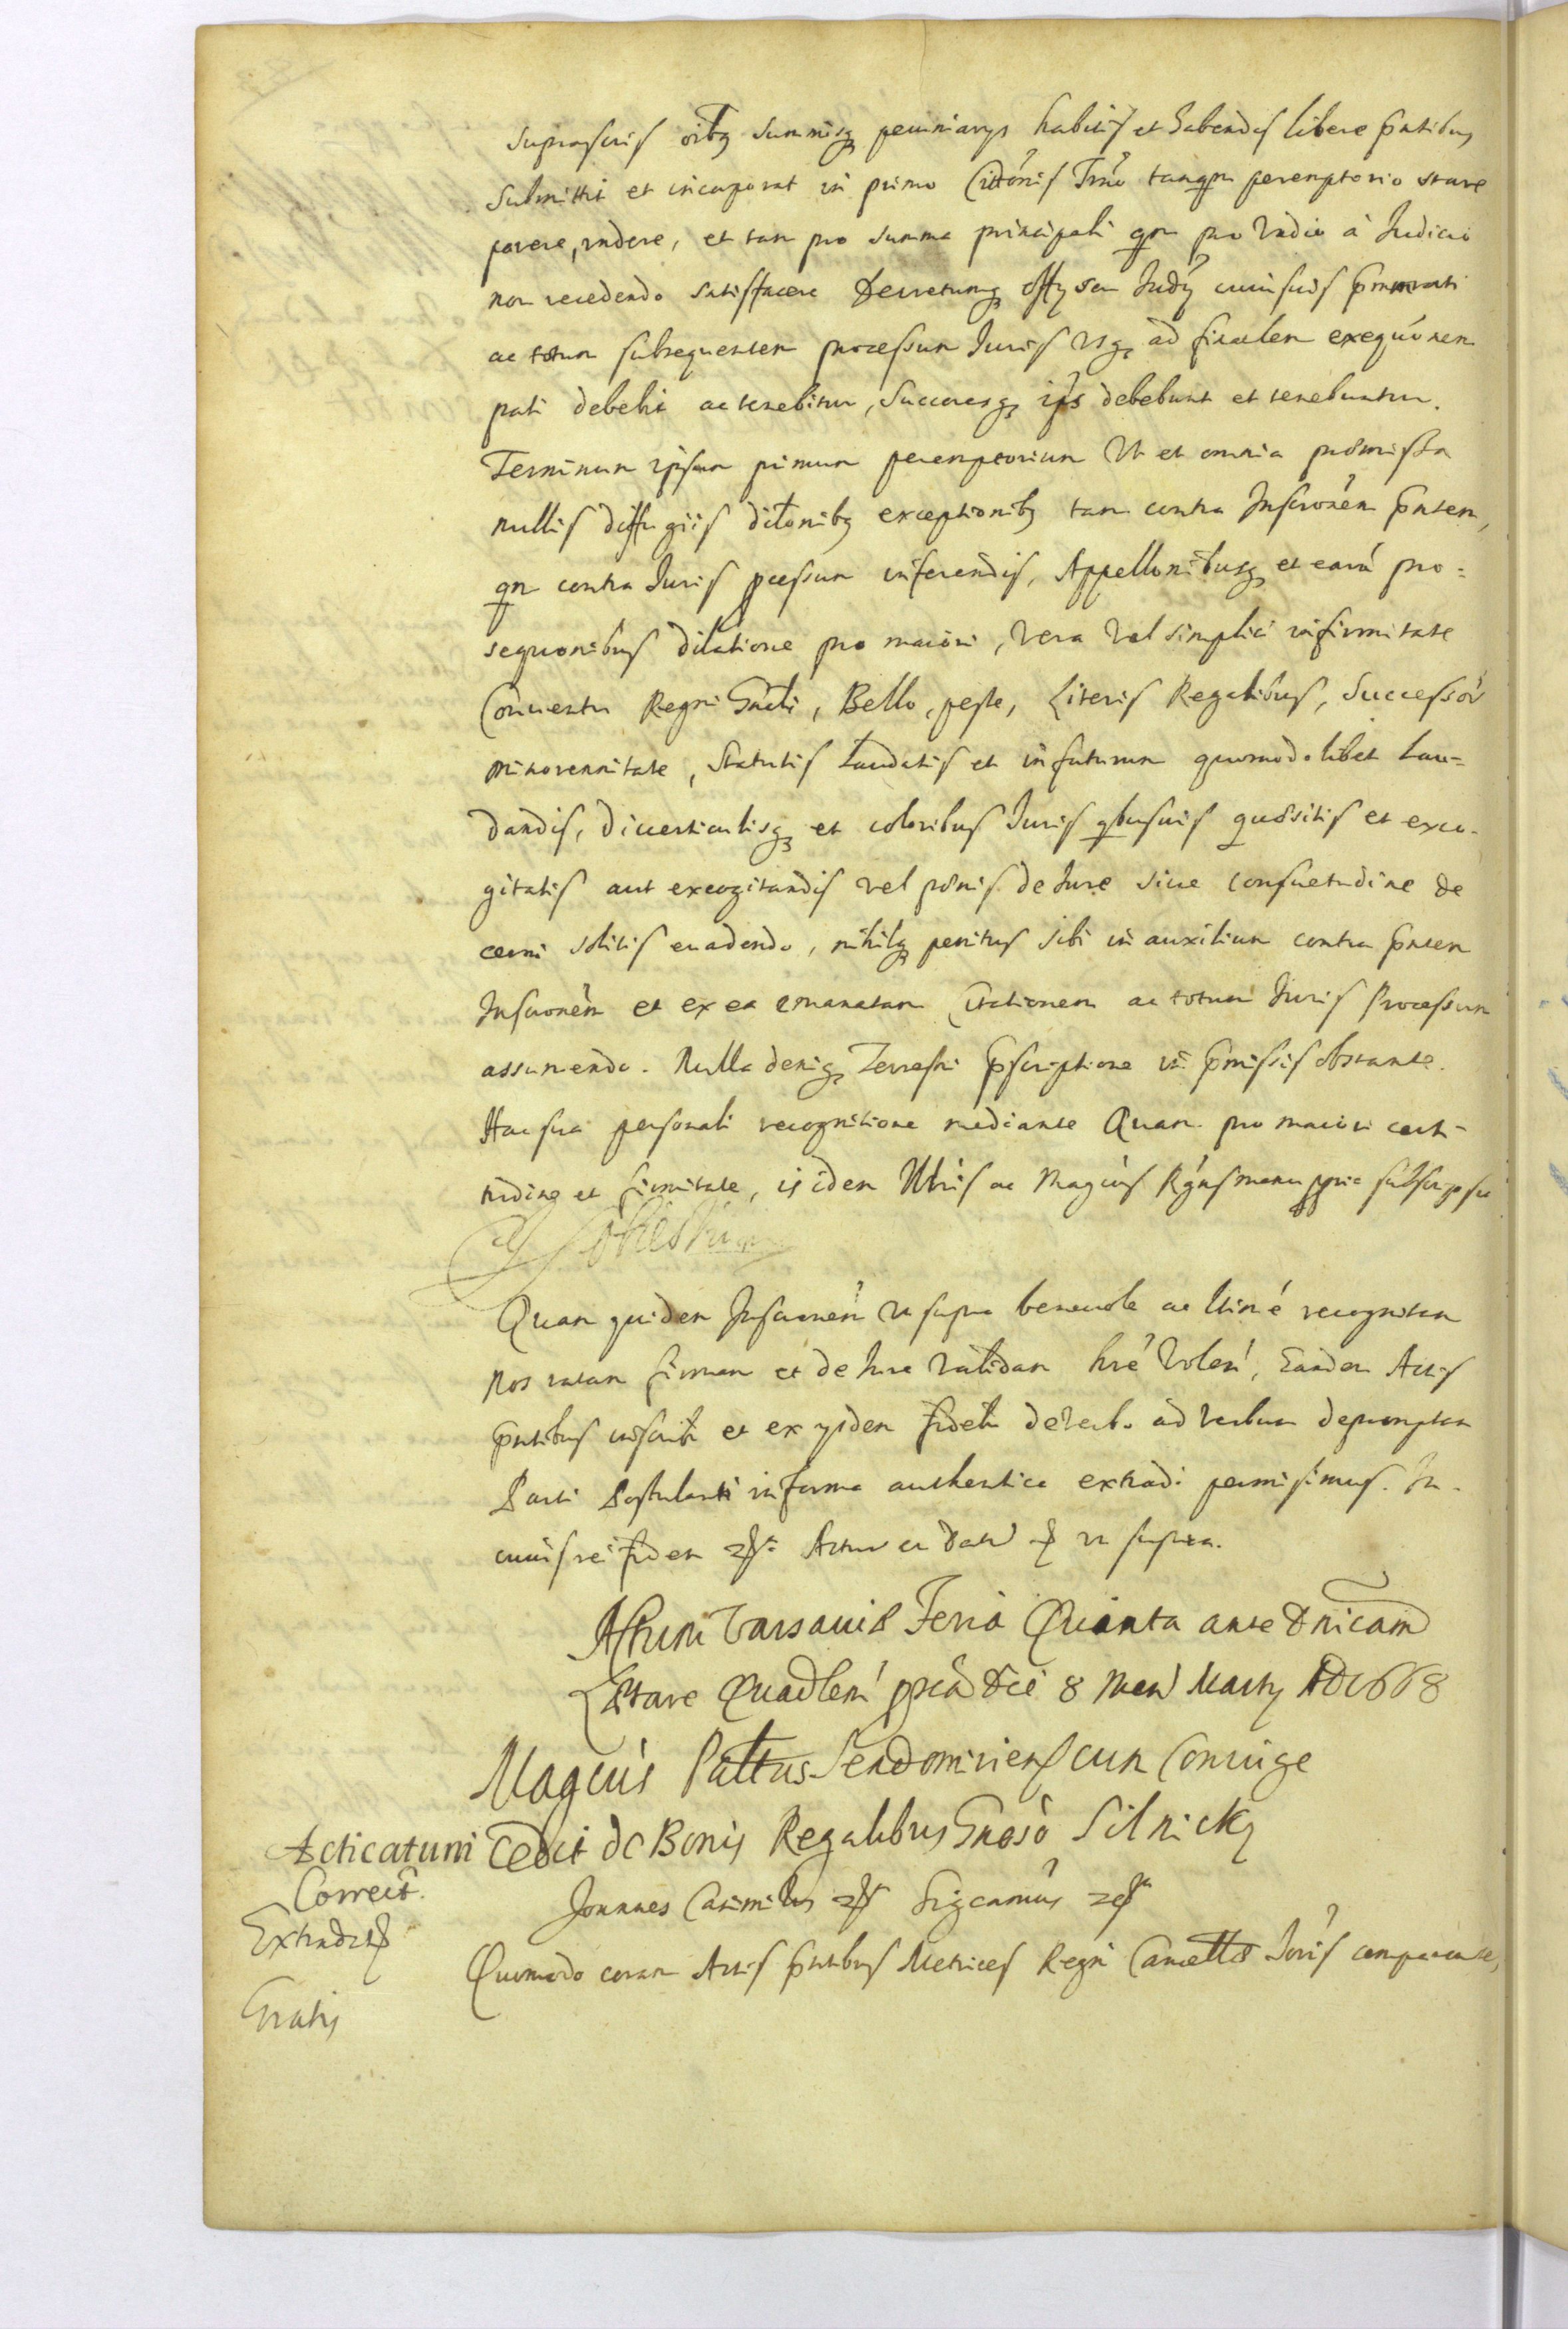 suprascris oibq summisq pecuniarys habitis et habendis libere pntibus
submittit et incorporat in primo Cittonis Trno tanqm peremptorio stare
parere, rndere, et tam pro summa principali qm pro vadio à Judicio
non recedendo satisfacere Decretumq offy seu Judy cuiusuis
ac totum subsequentem processum Juris vsq ad finalem exequonem
pati debebit ac tenebitur, Succoresq ips debebunt et tenebuntur.
Terminum ipsum primum peremptorium Vt et omnia præmissa
nullis diffugiis dilonibq exceptionibq tam contra Inscronem pntem,
qm contra Juris pcessum inferendis, Appellonibusq et earu pro=
sequonibus dilatione pro maiori, vera vel simplici infirmitate
Conuentu Regni Gnali, Bello, peste, Literis Regalibus, Successor
minorennitate, Statutis laudatis et in futurum quomodolibet lau=
dandis, diuerticulisq et coloribus Juris qbusuis quæsitis et exco-
gitatis aut excogitandis vel pænis de Jure siue consuetudine de
cerni solitis euadendo, nihilq penitus sibi in auxilium contra pntem
Inscronem et ex ea emanatam Citationem ac totum Juris Processum
assumendo. Nulla deniq Terrestri pscriptione in pmissis obstante.
Hac sua personali recognitione mediante Quam pro maiori certi-
tudine et firmitate, is idem Illris ac Magcus Rgns manu ppria subscripsit
Sobieski
Quam quidem Inscronem vt supra beneuole ac libre recognitam
Nos ratam firmam et de Jure validam hre Volen, Eandem Actis
pntibus inscribi et ex ysdem fideli de Verbo ad verbum depromptam
Parti Postulanti in forma authentica extradi permisimus. In
cuius rei fidem Actum et Dat vt supra.
Actum Varsauiæ Feria Quinta ante Dnicam
Lætare Quadlem pxia die 8 Men Marty AD 1668
Magcus Palttus Sendomiriens cum Coniuge
Acticatum Cedit de Bonis Regalibus Gnoso Silnicky
Correct.
Joannes Casimirus Sigcamus
Extradit
Quomodo coram Actis pntibus Metrices Regni Cancellæ Joris comparente,
Gratis